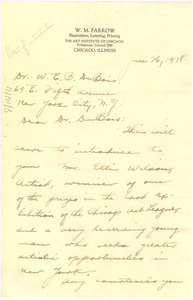 W. M. FARROW
Illustration, Lettering, Printing
THE ART INSTITUTE OF CHICAGO
Telephone, Central 7080
CHICAGO, ILLINOIS
Jan 26, 1928
Dr. W. E. B. DuBois.
69 Fifth Avenue
New York City, N.Y.
Dear Dr. DuBois:
This will
serve to introduce to
you Mr. Ellis Wilson,
Artist, winner of one
of the prizes in the last Ex-
hibition of the Chicago Art League,
and a very deserving young
man who seeks greater
artistic opportunities in
New York.
Any courtesies you